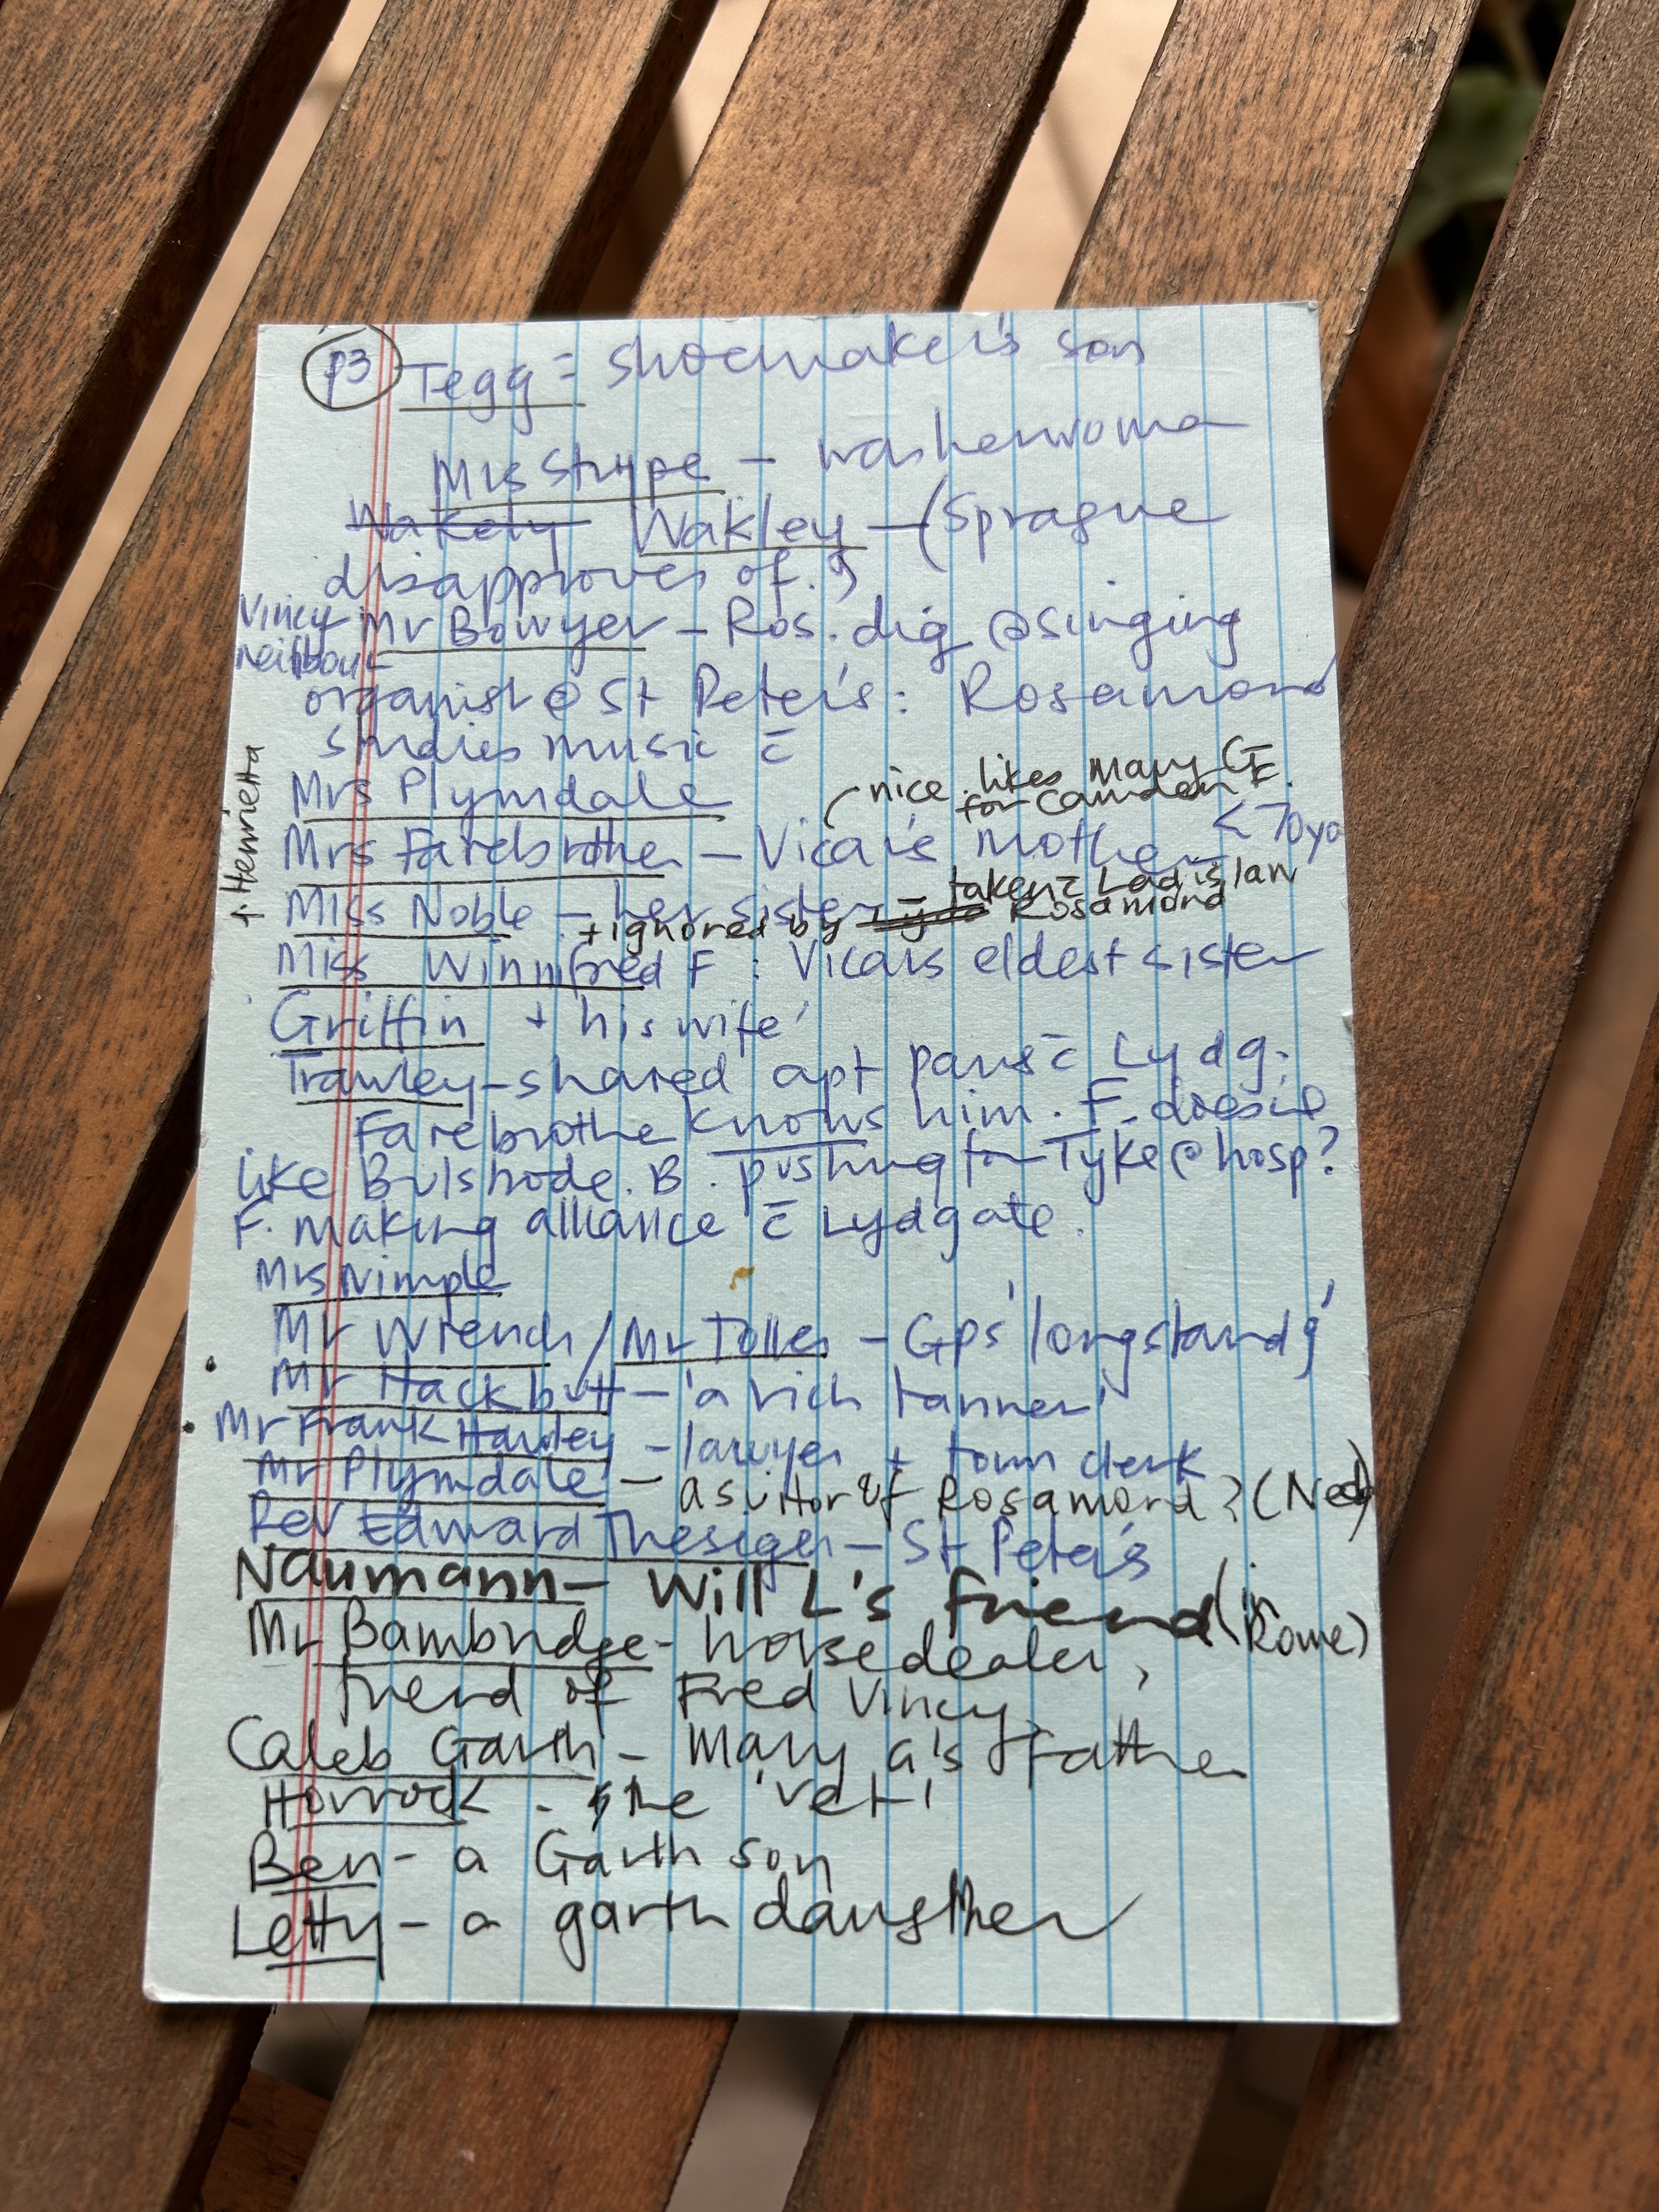 p3 Tegg = shoemaker's son
Mrs Strype - washerwoma
Wakely Wakley - (Sprague
disapproves of.)
Vincy Mr Bowyer - Ros. dig @ singing
neighbour
organist @ St Peter's: Rosamond
studies music c̄
Mrs Plymdale
nice. likes Mary G
for Camden
Mrs Farebrother - Vicar's mother < 70yo
Miss Noble - her sister - taken c̄ Ladislaw
+ ignored by Rosamond
+ Henrietta
Miss Winnifred F : Vicar's eldest sister
Griffin + his wife
Trawley - shared apt paris c̄ Lydg.
Farebrother knows him. F. doesn't
like Bulstrode. B. pushing for Tyke @ hosp?
F. making alliance c̄ Lydgate.
Mrs Nimple
Mr Wrench / Mr Toller - Gps 'longstandg'
Mr Hackbutt - 'a rich tanner'
Mr Frank Hawley - lawyer + town clerk
Mr Plymdale - a suitor of Rosamond? (Ned)
Rev Edward Thesiger - St Peter's
Naumann - Will L's friend (in
Rome)
Mr Bambridge - horse dealer,
friend of Fred Vincy
Caleb Garth - Mary G's father
Horrock - the 'vet'
Ben - a Garth son
Letty - a garth daugther